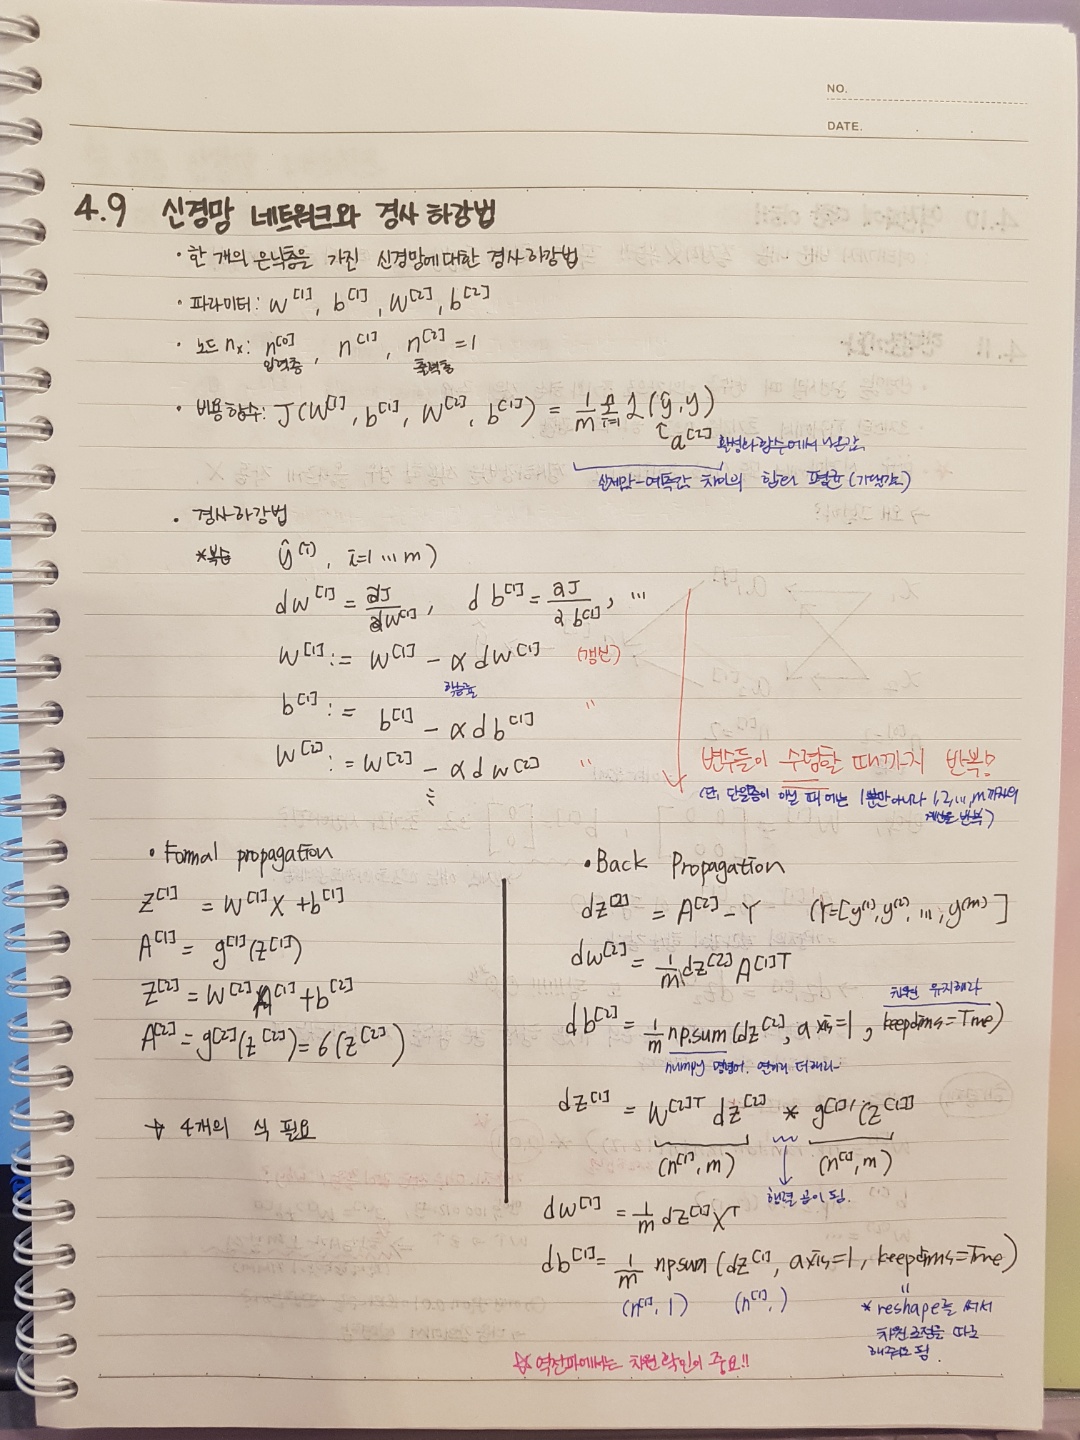 NO.
DATE.
4.9 신경망 네트워크와 경사 하강법
· 한 개의 은닉층을 가진 신경망에 대한 경사하강법
· 파라미터: W^[1], b^[1], W^[2], b^[2]
· 노드 nx: n^[0], n^[1], n^[2] = 1
입력층 출력층
· 비용함수: J(W^[1], b^[1], W^[2], b^[1]) = 1/m Σ i=1 L(ŷ, y)
↑ a^[2] 활성화 함수에서 나온 값
실제값-예측값 차이의 합의 평균
· 경사하강법
*복습 ŷ^(i), i=1 ... m)
dW^[1] = ∂J/∂W^[1], db^[1] = ∂J/∂b^[1], ...
W^[1] := W^[1] - α dW^[1] (갱신)
학습률
b^[1] := b^[1] - α db^[1] "
W^[2] := W^[2] - α dW^[2] "
변수들이 수렴할 때까지 반복!
(단, 단일층이 아닐 때에는 1뿐만 아니라 1,2,...,m 까지의
계산을 반복)
· Formal propagation
Z^[1] = W^[1]X + b^[1]
A^[1] = g^[1](Z^[1])
Z^[2] = W^[2]A^[1] + b^[2]
A^[2] = g^[2](Z^[2]) = 6(Z^[2])
→ 4개의 식 필요
· Back Propagation
dZ^[2] = A^[2] - Y (Y=[y^(1), y^(2), ..., y^(m)]
dW^[2] = 1/m dZ^[2] A^[1]T
차원 유지해라
db^[2] = 1/m np.sum(dZ^[2], axis=1, keepdims=True)
numpy 명령어. 더해라
dZ^[1] = W^[2]T dZ^[2] * g^[1]'(Z^[1])
(n^[1], m) (n^[1], m)
행렬 곱이 됨.
dW^[1] = 1/m dZ^[1] X^T
db^[1] = 1/m npsum(dZ^[1], axis=1, keepdims=True)
(n^[1], 1) (n^[1], )
* reshape를 써서
차원 조정을 따로
해줘도 됨.
☆ 역전파에서는 차원 확인이 중요!!